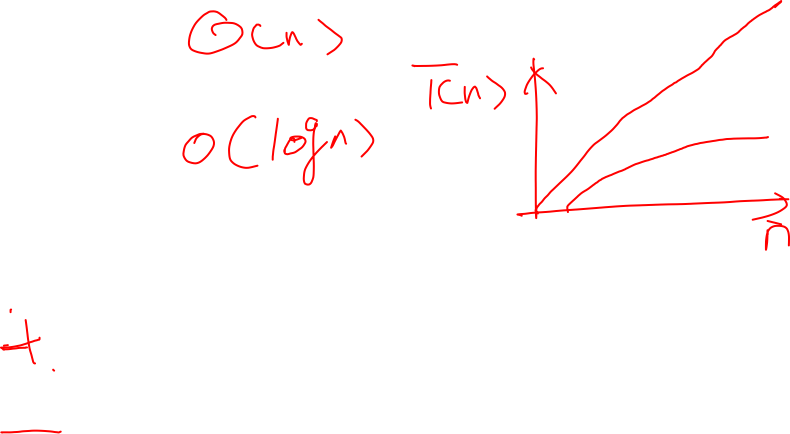 O(n)
O(logn)
T(n)
n
it.